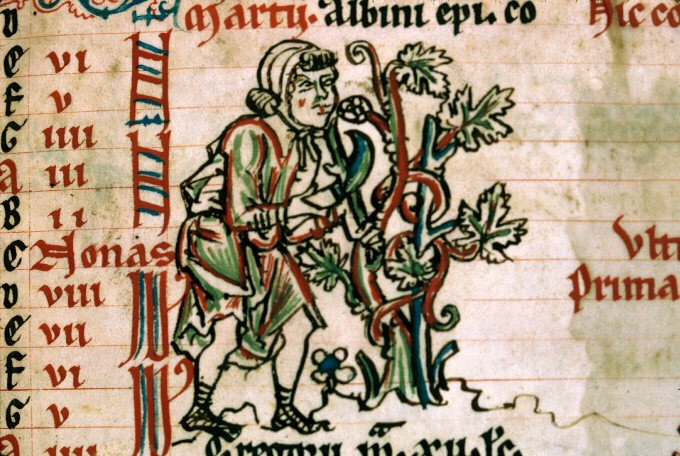 D Martii. Albini epi. co Hic co
E VI
F V
G IIII
A III
B II Ulti
C Nonas Prima
D VIII
E VII
F VI
G V
A IIII Gregorii